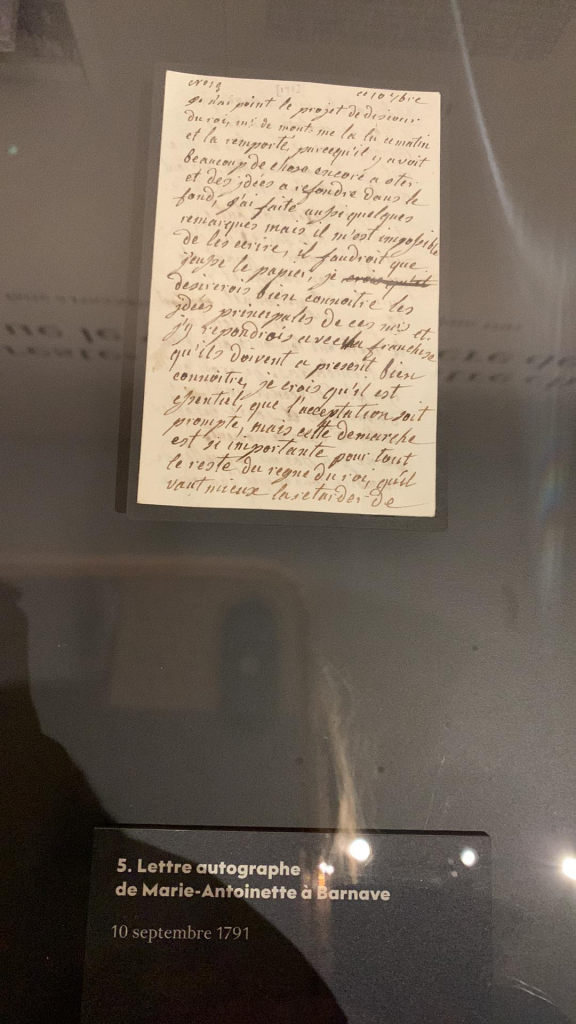 no 19 [1791] ce 10 7/bre
je n'ai point le projet de discour
du roi, mr. de mont: me la lu ce matin
et la remporté, parcequ'il y avoit
beaucoup de chose encore a oter
et des jdées a refondre dans le
fond, j'ai faite aussi quelques
remarques mais il m'est impossible
de les ecrire, il faudroit que
j'eusse le papier, je crois qu'il
desirerois bien connoitre les
jdées principales de ces mrs et
j'y repondrois avec la franchise
qu'ils doivent a present bien
connoitre, je crois qu'il est
essentiel, que l'acceptation soit
prompte, mais cette demarche
est si importante pour tout
le reste du regne du roi, qu'il
vaut mieux la retarder de
5. Lettre autographe
de Marie-Antoinette à Barnave
10 septembre 1791